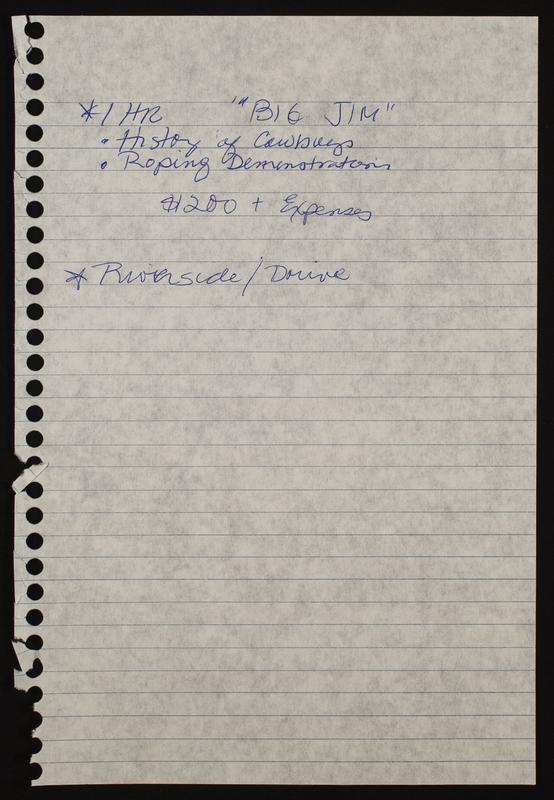 * 1 HR "BIG JIM"
• History of Cowboys
• Roping Demonstrations
$1200 + Expenses
* Riverside / Drive